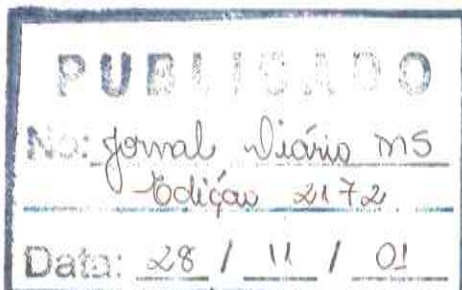 PUBLICADO
No: Jornal Diário MS
Edição 2172
Data: 28 / 11 / 01